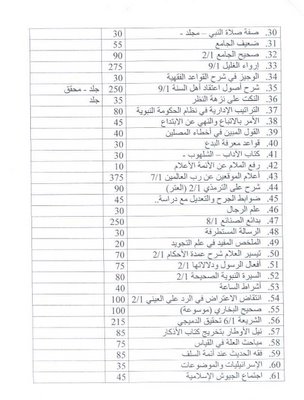 30. صفة صلاة النبي – مجلد - 30
31. ضعيف الجامع 55
32. صحيح الجامع 2/1 90
33. إرواء الغليل 9/1 275
34. الوجيز في شرح القواعد الفقهية 30
35. شرح أصول اعتقاد أهل السنة 9/1 250 جلد - محقق
36. النكت على نزهة النظر 35 جلد
37. التراتيب الإدارية في نظام الحكومة النبوية 80
38. الأمر بالاتباع والنهي عن الابتداع 45
39. القول المبين في أخطاء المصلين 40
40. قواعد معرفة البدع 30
41. كتاب الآداب – الشلهوب - 30
42. رفع الملام عن الأئمة الأعلام 10
43. أعلام الموقعين عن رب العالمين 7/1 375
44. شرح علل الترمذي 2/1 (العتر) 90
45. ضوابط الجرح والتعديل مع دراسة. 45
46. علم الرجال 40
47. بدائع الصنائع 8/1 250
48. الرسالة المستطرفة 40
49. الملخص المفيد في علم التجويد 20
50. تيسير العلام شرح عمدة الأحكام 2/1 70
51. أفعال الرسول ودلالاتها 2/1 75
52. السيرة النبوية الصحيحة 2/1 80
53. أشراط الساعة 40
54. انتقاض الاعتراض في الرد على العيني 2/1 100
55. صحيح البخاري (موسوعة) 100
56. الشريعة 6/1 تحقيق الدميجي 215
57. نيل الأوطار بتخريج كتاب الأذكار 85
58. مباحث العلة في القياس 75
59. فقه الحديث عند أئمة السلف 85
60. الإسرائيليات والموضوعات 35
61. اجتماع الجيوش الإسلامية 45